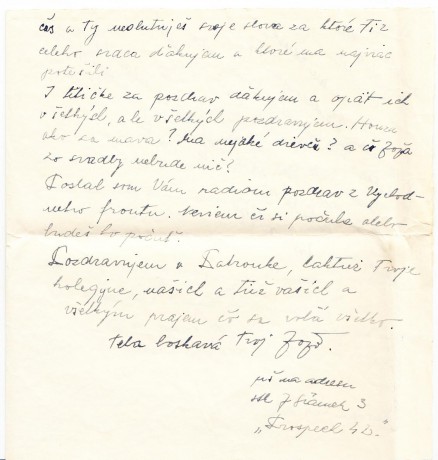 čas a Ty neslutuješ svoje slova za ktoré Ti z
celeho srdca ďakujem a ktoré ma najviac
potešili
I Titičke za pozdrav ďakujem a opäť ich
všetkých, ale všetkých pozdravujem.
ako sa máva? Má nejaké dievča? a čo Joža
zo svadby nebude nič?
Poslal som Vám radiom pozdrav z Východ-
neho frontu, neviem či si počula alebo
budeš to počuť.
Pozdravujem v Dabronke, taktiež Tvoje
kolegyne, našich a tiež vašich a
všetkým prajem čo sa volá všetko.
Teba boskavá Tvoj Jožo.
píš na adresu
3